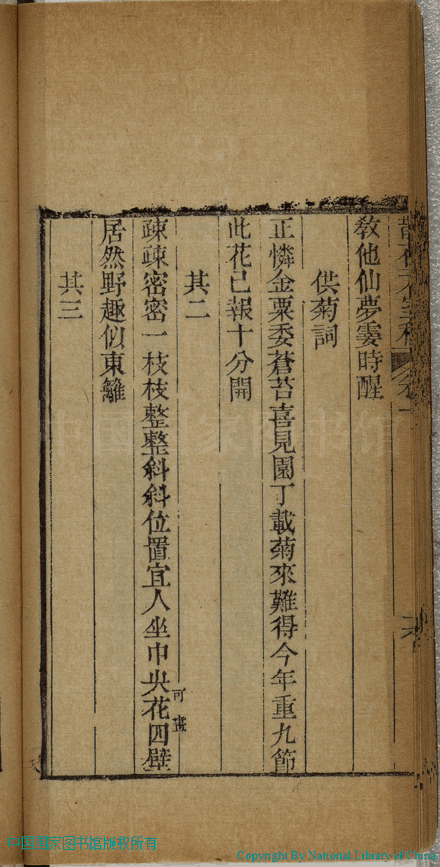 教他仙夢霎時醒
供菊詞
正憐金粟委蒼苔喜見園丁載菊來難得今年重九節
此花已報十分開
其二
疎疎密密一枝枝整整斜斜位置宜人坐中央花四壁
可畫
居然野趣似東籬
其三
中国国家图书馆版权所有
Copyright By National Library of China